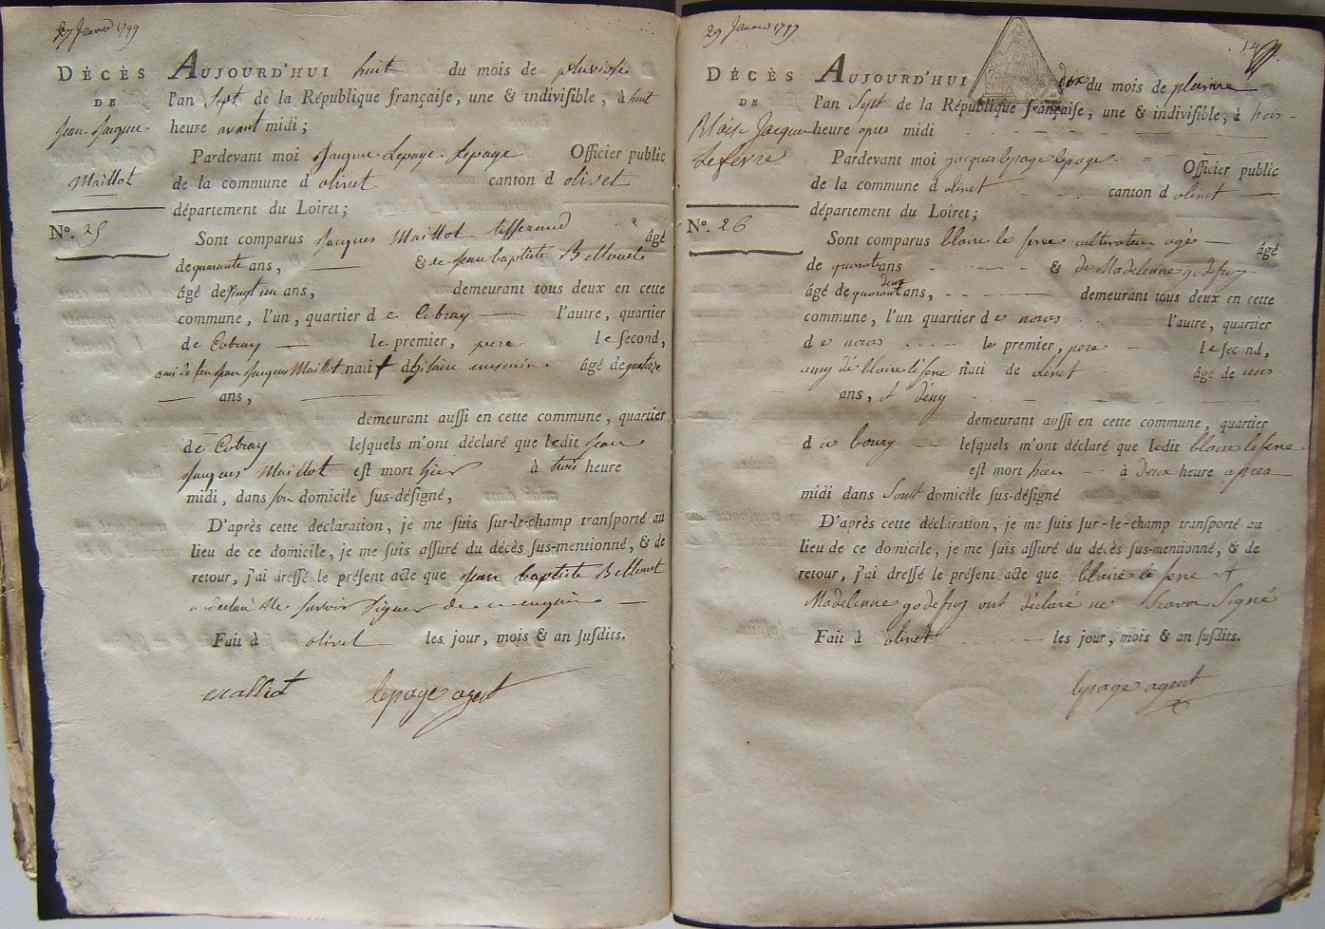 27 Janvier 1799
DÉCÈS
DE
Jean-Jacque
Maillot
Nº. 25
AUJOURD'HUI huit du mois de pluviose
l'an Sept de la République françaiſe, une & indiviſible, à huit
heure avant midi;
Pardevant moi Jacque Lepage lepage Officier public
de la commune d'olivet canton d olivet
département du Loiret;
Sont comparus Jacques Maillot tifferand âgé
de quarante ans, & de jean baptiste Bellouet
âgé de vingt un ans, demeurant tous deux en cette
commune, l'un, quartier d e Cobray l'autre, quartier
de Cobray le premier, pere le ſecond,
ami de feu jean Jacques Maillot natif d âgé de quatorze
ans,
demeurant auſſi en cette commune, quartier
de Cobray leſquels m'ont déclaré que ledit jean
Jacques Maillot eſt mort hier à trois heure
midi, dans ſon domicile ſus-déſigné,
D'après cette déclaration, je me ſuis ſur-le-champ tranſporté au
lieu de ce domicile, je me ſuis aſſuré du décès ſus-mentionné, & de
retour, j'ai dreſſé le préſent acte que jean baptiste Bellouet
a déclaré ne savoir signer de ce enquis
Fait à olivet les jour, mois & an ſuſdits.
maillot lepage agent
29 Janvier 1799
14
DÉCÈS
DE
Blaise Jacque
Lefevre
Nº. 26
AUJOURD'HUI dix du mois de pluviose
l'an Sept de la République françaiſe, une & indiviſible, à trois
heure apres midi
Pardevant moi jacque lepage lepage Officier public
de la commune d olivet canton d olivet
département du Loiret;
Sont comparus blaise le fevre cultivateur agés âgé
de quarante ans & de Madeleinne godefroy
âgé de quarante deux ans, demeurant tous deux en cette
commune, l'un quartier d e noras l'autre, quartier
d e noras le premier, pere le ſecond,
amy de blaise lefevre nati de olivet âgé de trois
ans, et demy
demeurant auſſi en cette commune, quartier
d e leſquels m'ont déclaré que ledit blaise lefevre
eſt mort hier à deux heure apres
midi dans Sondit domicile ſus-déſigné
D'après cette déclaration, je me ſuis ſur-le-champ tranſporté au
lieu de ce domicile, je me ſuis aſſuré du décès ſus-mentionné, & de
retour, j'ai dreſſé le préſent acte que blaise le fevre et
Madeleinne godefroy ont déclaré ne Scavoir Signé
Fait à olivet les jour, mois & an ſuſdits.
lepage agent